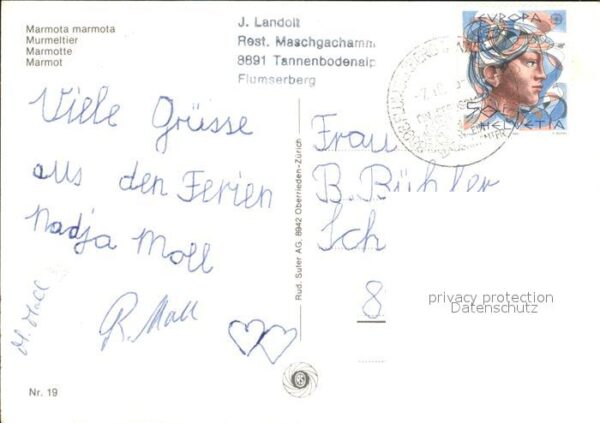 Marmota marmota
Murmeltier
Marmotte
Marmot
J. Landolt
Rest. Maschgachamm
8891 Tannenbodenalp
Flumserberg
EUROPA
HELVETIA
Viele Grüsse
aus den Ferien
Nadja Moll
M. Moll
R. Moll
Rud. Suter AG, 8942 Oberrieden-Zürich
Frau
B. Bühler
Sch
8
privacy protection
Datenschutz
Nr. 19